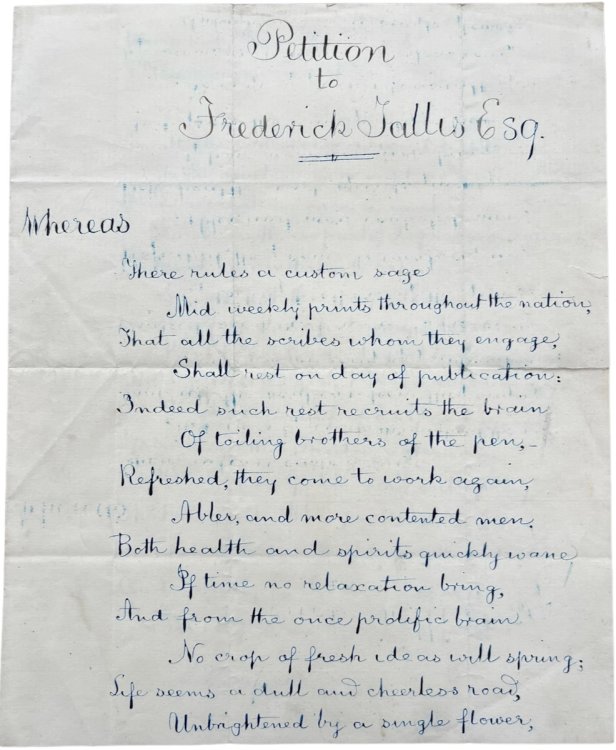 Petition
to
Frederick Tallis Esq.
Whereas
There rules a custom sage
Mid weekly prints throughout the nation,
That all the scribes whom they engage,
Shall rest on day of publication:
Indeed such rest recruits the brain
Of toiling brothers of the pen,–
Refreshed, they come to work again,
Abler, and more contented men.
Both health and spirits quickly wane,
If time no relaxation bring,
And from the once prolific brain
No crop of fresh ideas will spring;
Life seems a dull and cheerless road,
Unbrightened by a single flower;